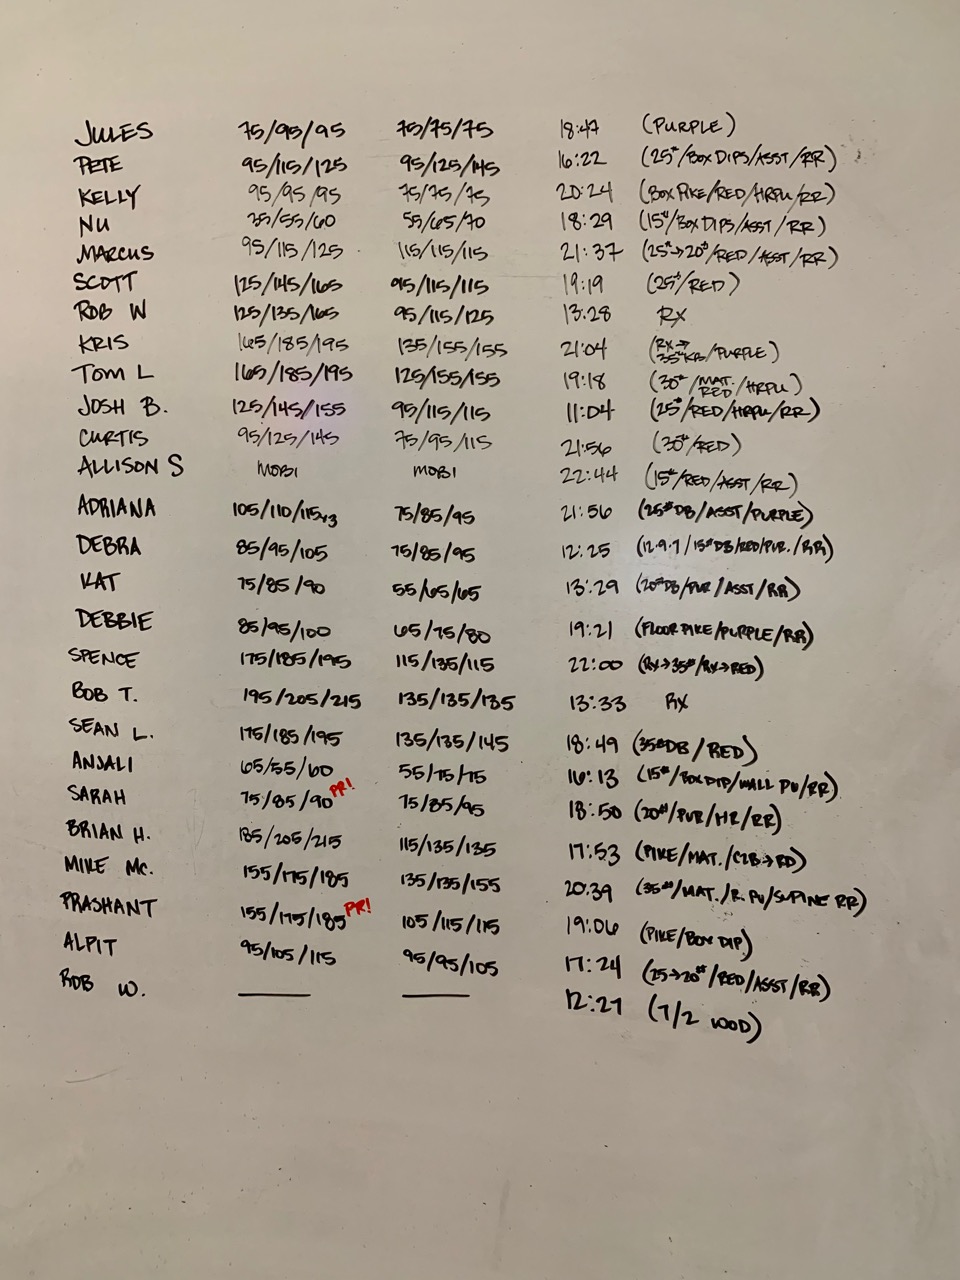 JULES 75/95/95 75/75/75 18:47 (PURPLE)
PETE 95/115/125 95/125/145 16:22 (25#/BOX DIPS/ASST/RR)
KELLY 95/95/95 75/75/75 20:24 (BOX PIKE/RED/HRPU/RR)
NU 35/55/60 55/65/70 18:29 (15#/BOX DIPS/ASST/RR)
MARCUS 95/115/125 115/115/115 21:37 (25#→20#/RED/ASST/RR)
SCOTT 125/145/165 95/115/115 19:19 (25#/RED)
ROB W 125/135/165 95/115/125 13:28 RX
KRIS 165/185/195 135/155/155 21:04 (RX→35#KB/PURPLE)
TOM L 165/185/195 125/155/155 19:18 (30#/MAT. RED/HRPU)
JOSH B. 125/145/155 95/115/115 11:04 (25#/RED/HRPU/RR)
CURTIS 95/125/145 75/95/115 21:56 (30#/RED)
ALLISON S MOBI MOBI 22:44 (15#/RED/ASST/RR)
ADRIANA 105/110/115x3 75/85/95 21:56 (25#DB/ASST/PURPLE)
DEBRA 85/95/105 75/85/95 12:25 (12·9·7/15#DB/RED/PUR./RR)
KAT 75/85/90 55/65/65 13:29 (20#DB/PUR/ASST/RR)
DEBBIE 85/95/100 65/75/80 19:21 (FLOOR PIKE/PURPLE/RR)
SPENCE 175/185/195 115/135/115 22:00 (RX→35#/RX→RED)
BOB T. 195/205/215 135/135/135 13:33 RX
SEAN L. 175/185/195 135/135/145 18:49 (35#DB/RED)
ANJALI 65/55/60 55/75/75 16:13 (15#/BOX DIP/WALL PU/RR)
SARAH 75/85/90 PR! 75/85/95 18:50 (20#/PUR/HR/RR)
BRIAN H. 185/205/215 115/135/135 17:53 (PIKE/MAT./C2B→RD)
MIKE MC. 155/175/185 135/135/155 20:39 (35#/MAT./R.PU/SUPINE RR)
PRASHANT 155/175/185 PR! 105/115/115 19:06 (PIKE/BOX DIP)
ALPIT 95/105/115 95/95/105 17:24 (25→20#/RED/ASST/RR)
ROB W. 12:27 (7/2 WOD)